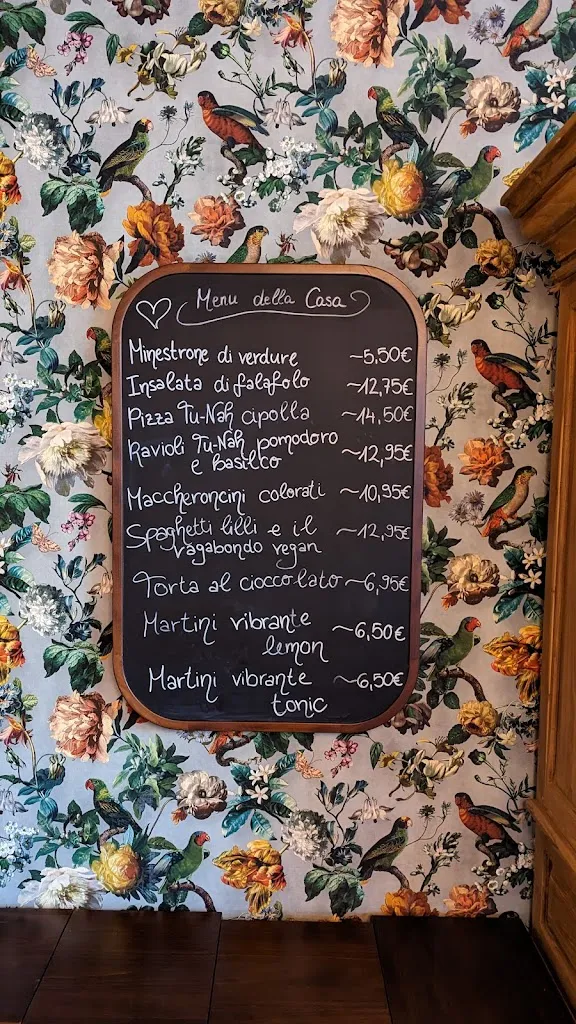 Menu della Casa
Minestrone di verdure ~5,50€
Insalata di falafolo ~12,75€
Pizza Tu-Nah cipolla ~14,50€
Ravioli Tu-Nah pomodoro ~12,95€
e Basilico
Maccheroncini colorati ~10,95€
Spaghetti lilli e il ~12,95€
vagabondo vegan
Torta al cioccolato ~6,95€
Martini vibrante ~6,50€
lemon
Martini vibrante ~6,50€
tonic